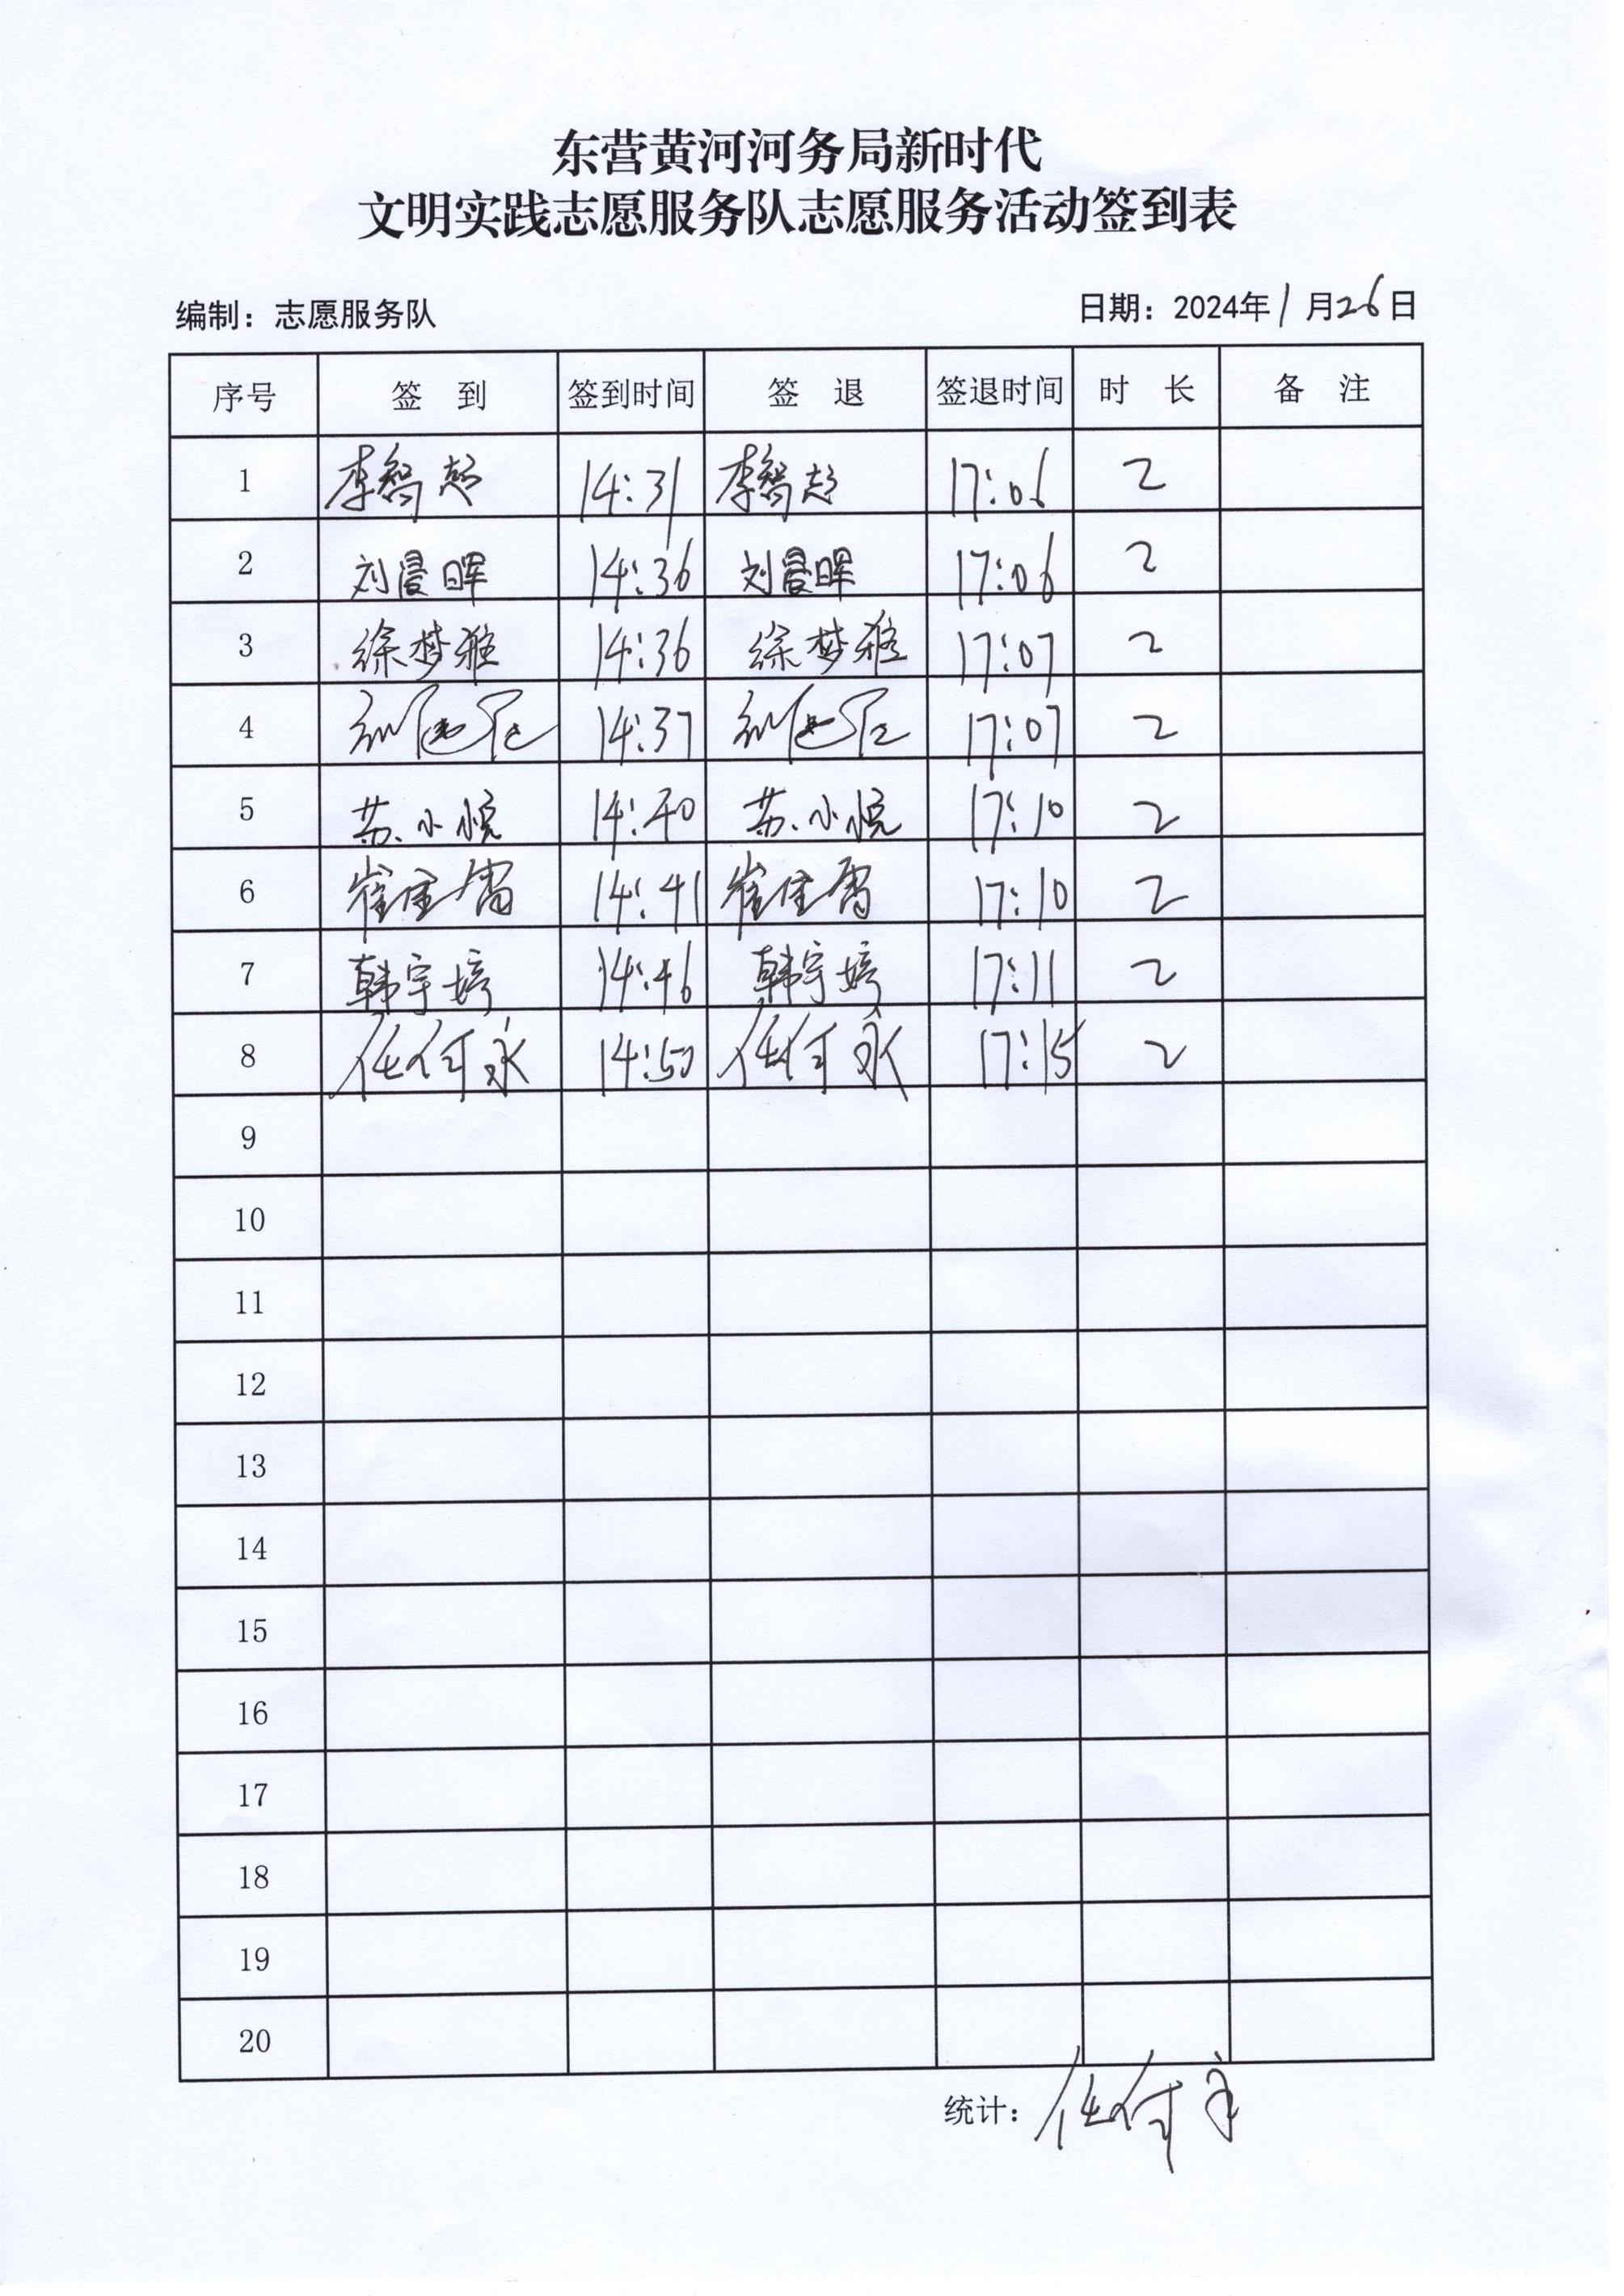 东营黄河河务局新时代
文明实践志愿服务队志愿服务活动签到表
编制：志愿服务队 日期：2024年1月26日
序号 签到 签到时间 签退 签退时间 时长 备注
1 李智超 14:31 李智超 17:06 2
2 刘晨晖 14:36 刘晨晖 17:06 2
3 徐梦雅 14:36 徐梦雅 17:07 2
4 14:37 17:07 2
5 苏小悦 14:40 苏小悦 17:10 2
6 崔佳 14:41 崔佳 17:10 2
7 韩宇婷 14:46 韩宇婷 17:11 2
8 任付永 14:50 任付永 17:15 2
9
10
11
12
13
14
15
16
17
18
19
20
统计：任付永